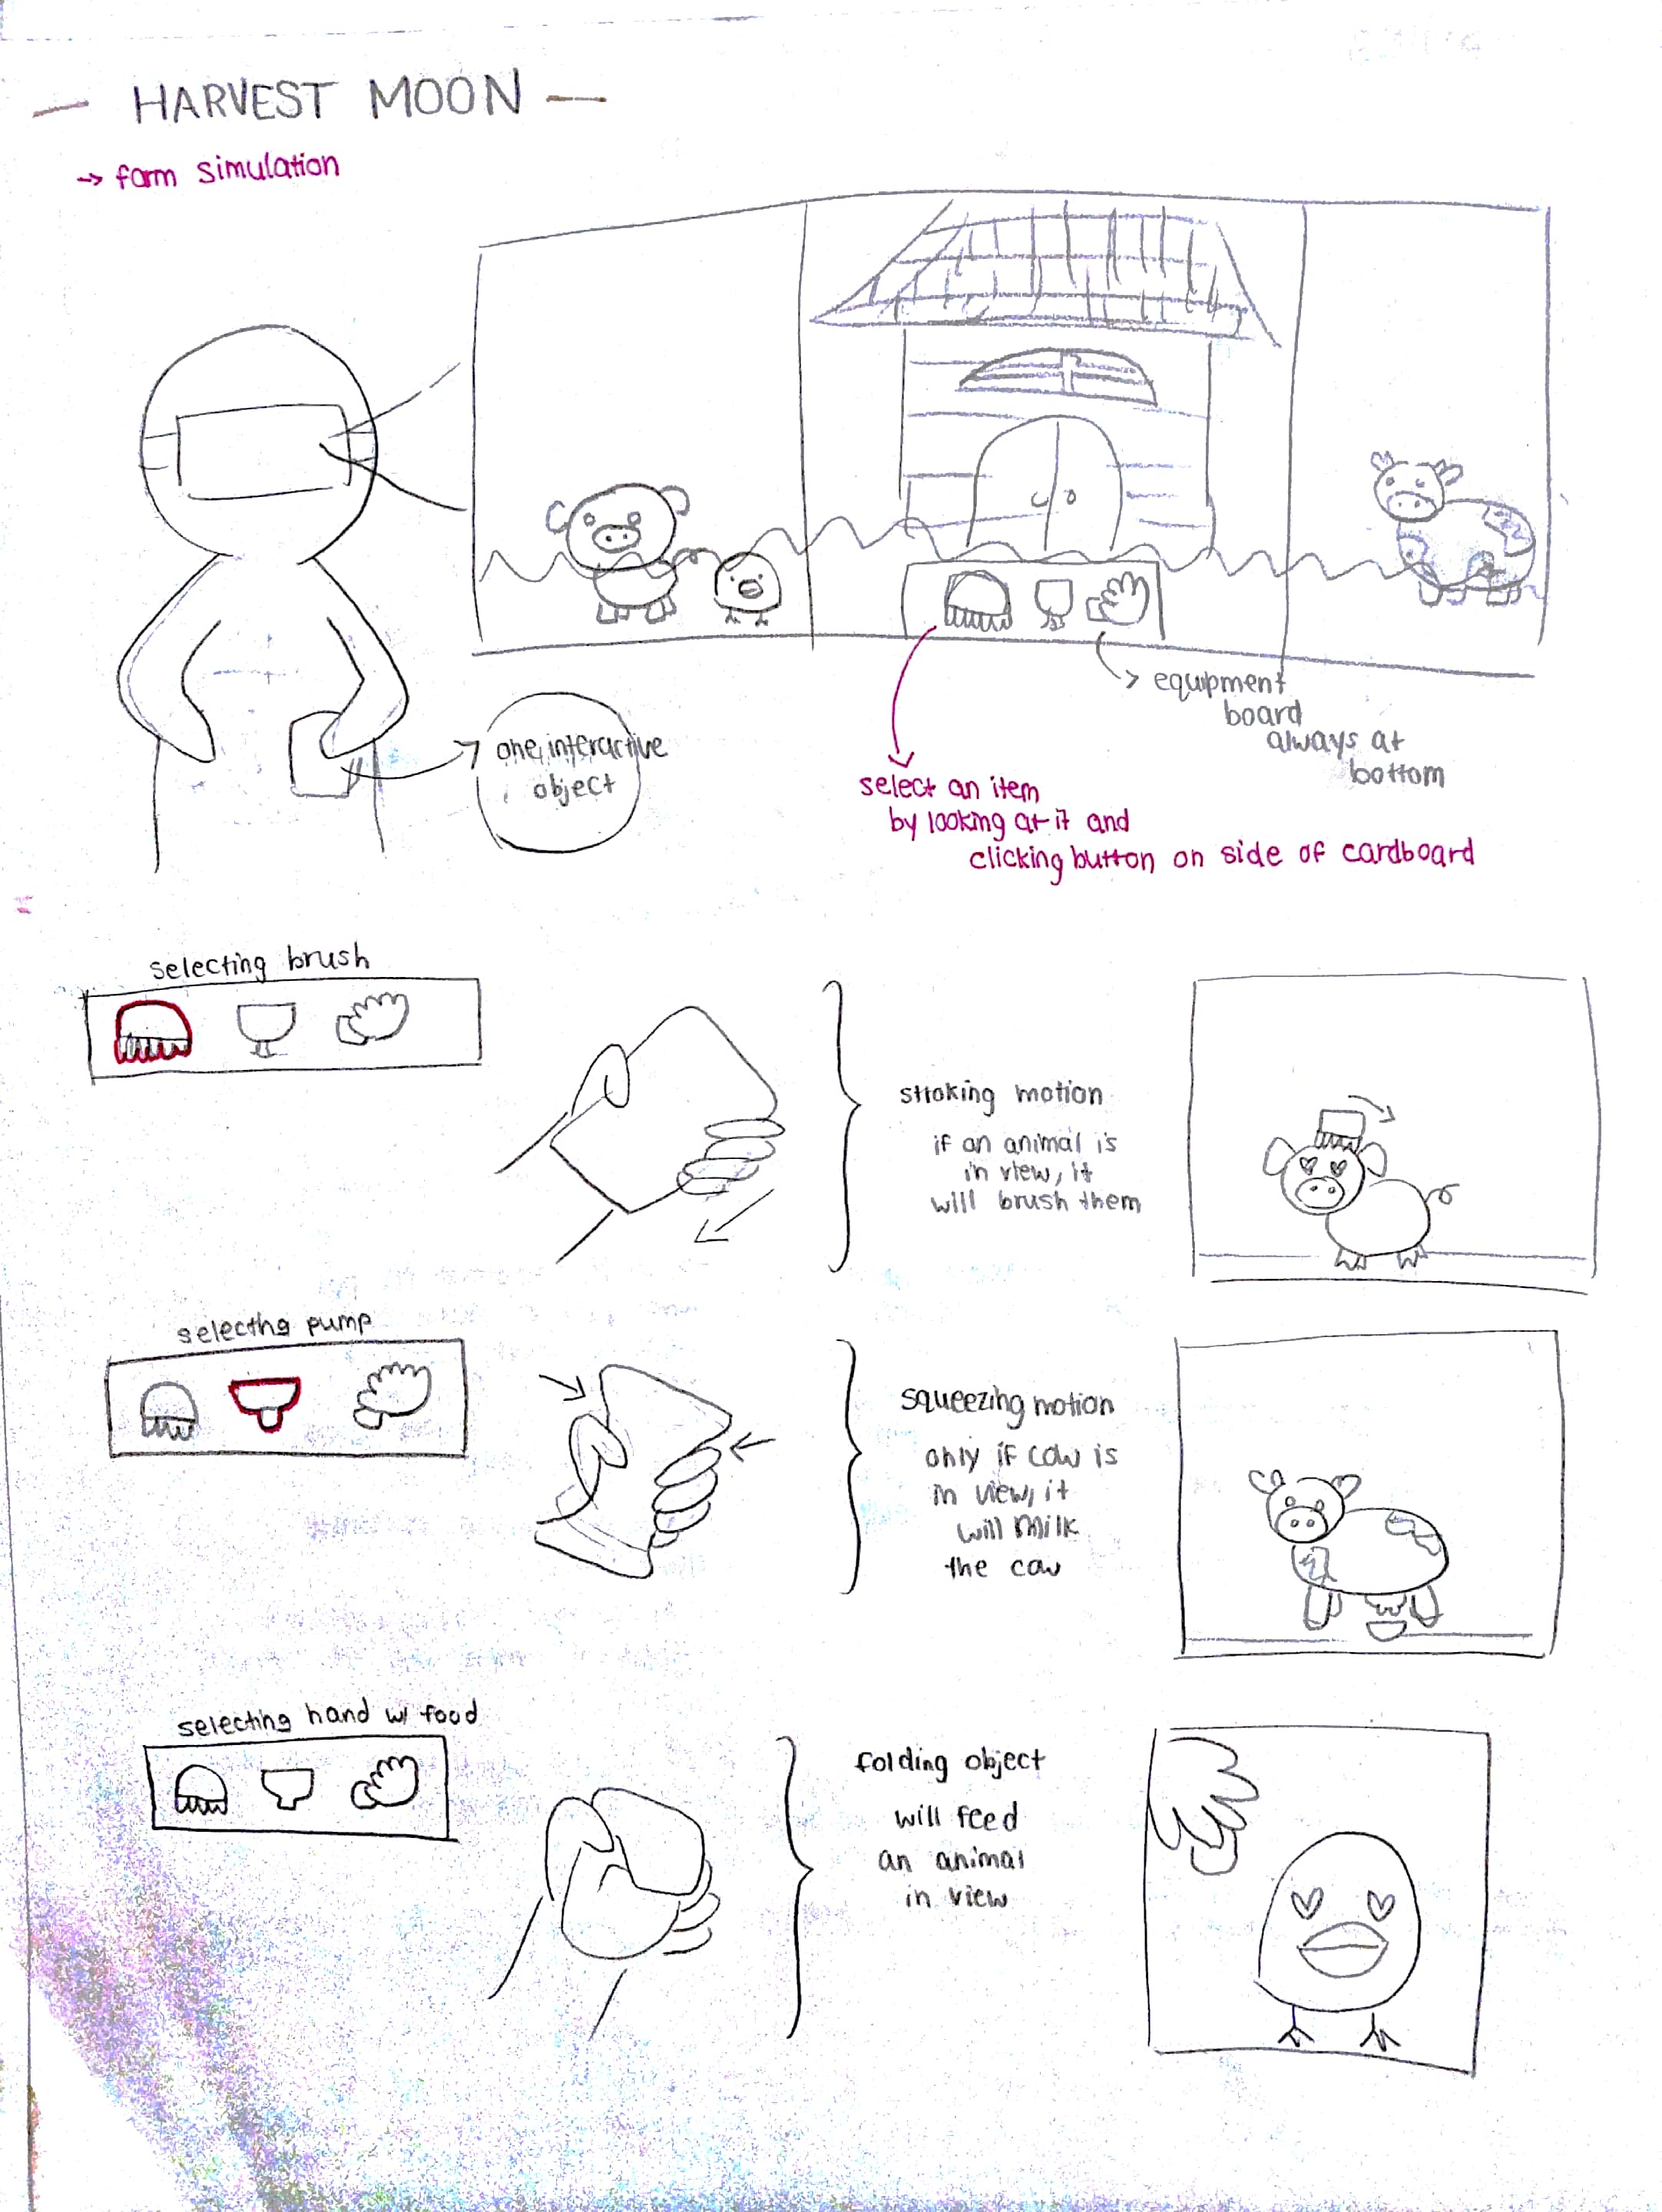 — HARVEST MOON —
→ farm simulation
one interactive
object
equipment
board
always at
bottom
select an item
by looking at it and
clicking button on side of cardboard
selecting brush
stroking motion
if an animal is
in view, it
will brush them
selecting pump
squeezing motion
only if cow is
in view, it
will milk
the cow
selecting hand w/ food
folding object
will feed
an animal
in view